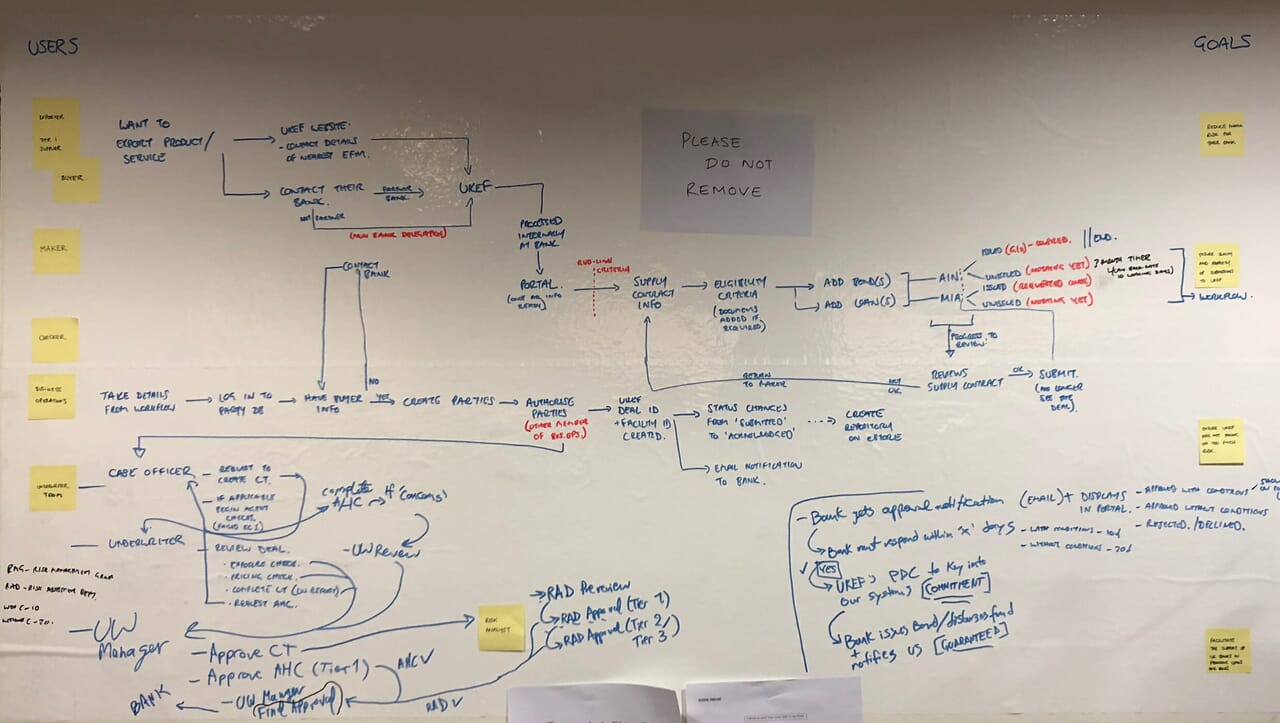 USERS
GOALS
EXPORTER
TIER 1
SUPPLIER
BUYER
MAKER
CHECKER
BUSINESS
OPERATIONS
UNDERWRITER
TEAM
WANT TO
EXPORT PRODUCT/
SERVICE
UKEF WEBSITE
- CONTACT DETAILS
OF NEAREST EFM.
CONTACT THEIR
BANK.
PARTNER
BANK.
NOT PARTNER
(NON BANK DELEGATION)
UKEF
PROCESSED
INTERNALLY
AT BANK
PORTAL.
(ONCE ALL INFO
READY)
RED-LINE
CRITERIA
SUPPLY
CONTRACT
INFO
ELIGIBILITY
CRITERIA
(DOCUMENTS
ADDED IF
REQUIRED)
ADD BOND(S)
ADD LOAN(S)
AIN
MIA
ISSUED
- COVERED.
END.
UNISSUED (NOTHING YET)
ISSUED (REQUESTED COVER)
UNISSUED (NOTHING YET)
3 MONTH TIMER
10 WORKING DAYS
WORKFLOW.
PLEASE
DO NOT
REMOVE
PROGRESS TO
REVIEW.
REVIEWS
SUPPLY CONTRACT
OK
NOT
OK
SUBMIT.
(NO LONGER
SEE THE
DEAL)
RETURN
TO MAKER
CONTACT
BANK
NO
TAKE DETAILS
FROM WORKFLOW
LOG IN TO
PARTY DB
HAVE BUYER
INFO
YES
CREATE PARTIES
AUTHORISE
PARTIES
(OTHER MEMBER
OF BUS.OPS.)
UKEF
DEAL ID
+ FACILITY ID
CREATED.
STATUS CHANGES
FROM 'SUBMITTED'
TO 'ACKNOWLEDGED'
CREATE
REPOSITORY
ON ESTORE
EMAIL NOTIFICATION
TO BANK.
CASE OFFICER
- REQUEST TO
CREATE CT.
- IF APPLICABLE
BEGIN AGENT
CHECKS.
complete
AHC
If (concerns)
UNDERWRITER
- REVIEW DEAL.
· EXPOSURE CHECK.
· PRICING CHECK.
· COMPLETE CT
- REQUEST AHC.
- UW Review
RMG - RISK MANAGEMENT GROUP
- UW
Manager
- Approve CT
- Approve AHC (Tier 1)
- UW Manger
(Final Approval)
BANK
AHC✓
RAD✓
RISK
ANALYST
RAD Preview
RAD Approval (Tier 1)
RAD Approval (Tier 2/
Tier 3)
- Bank gets approval notification (EMAIL) + DISPLAYS
IN PORTAL.
- APPROVED WITH CONDITIONS
- APPROVED WITHOUT CONDITIONS
- REJECTED / DECLINED.
Bank must respond within 'x' days
- WITH CONDITIONS - 10d
- WITHOUT CONDITIONS - 20d
✓ YES
UKEF's PDC to Key into
our systems [COMMITMENT]
Bank issues Bond/disburses fund
+ notifies us [GUARANTEED]